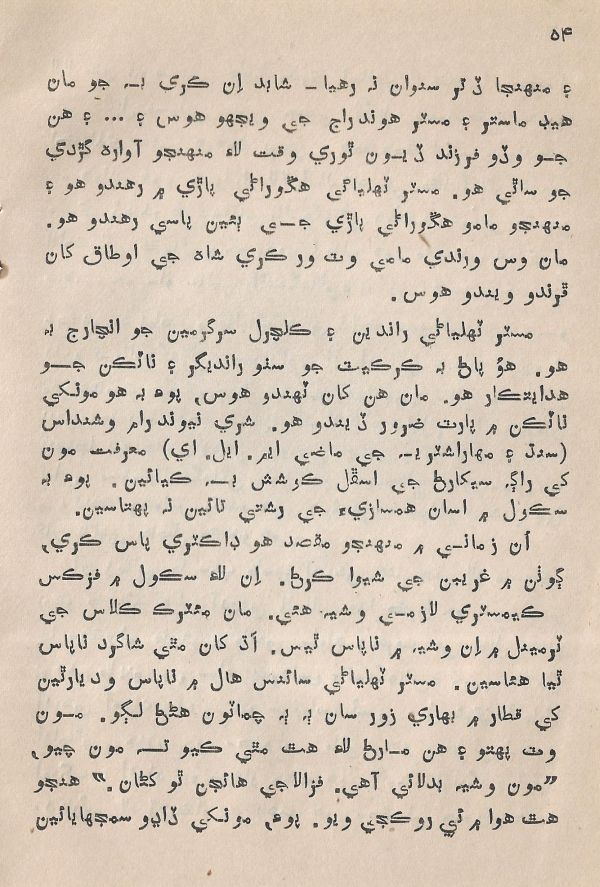 ۵۴
۽ منهنجا ڏٺر سنوان نہ رهيا۔ شايد اِن ڪري بہ جو مان
هيڊ ماستر ۽ مسٽر هوندراج جي ويجهو هوس ۽ ... ۽ هن
جو وڏو فرزند ڏيون ٿوري وقت لاءِ منهنجو آواره گڙدي
جو ساٿي هو. مسٽر ٽهلياڻي هڱوراڻي پاڙي ۾ رهندو هو ۽
منهنجو مامو هڱوراڻي پاڙي جي ٻئين پاسي رهندو هو.
مان وس ورندي مامي وٽ ورڪري شاه جي اوطاق کان
ڦرندو ويندو هوس.
مسٽر ٽهلياڻي راندين ۽ ڪلچرل سرگرمين جو انچارج بہ
هو. هوُ پاڻ بہ ڪرڪيٽ جو سٺو رانديگر ۽ ناٽڪن جو
هدايتڪار هو. مان هن کان ٽهندو هوس، پوءِ بہ هو مونکي
ناٽڪن ۾ پارٽ ضرور ڏيندو هو. شري نيوندرام وشنداس
(سنڌ ۽ مهاراشٽر بہ جي ماضي ايم. ايل. اي) معرفت مون
کي راڳ سيکارڻ جي اسڦل ڪوشش بہ ڪيائين. پوءِ بہ
سڪول ۾ اسان همسازيءَ جي رشتي تائين نہ پهتاسين.
اُن زماني ۾ منهنجو مقصد هو ڊاڪٽري پاس ڪري،
ڳوٺن ۾ غريبن جي شيوا ڪرڻ. اِن لاءِ سڪول ۾ فزڪس
ڪيمسٽري لازمي وشيہ هئي. مان مئٽرڪ ڪلاس جي
ٽرمينل ۾ اِن وشيہ ۾ ناپاس ٿيس. اَڌ کان مٿي شاگرد ناپاس
ٿيا هئاسين. مسٽر ٽهلياڻي سائنس هال ۾ ناپاس وديارٿين
کي قطار ۾ بهاري زور سان ٻہ ٻہ چماٽون هڻڻ لڳو. مون
وٽ پهتو ۽ هن مارڻ لاءِ هٿ مٿي ڪيو تہ مون چيو،
”مون وشيہ بدلائي آهي. فزالاجي هائجن ٿو کڻان.” هنجو
هٿ هوا ۾ ئي روڪجي ويو. پوءِ، مونکي ڏاڍو سمجهايائين